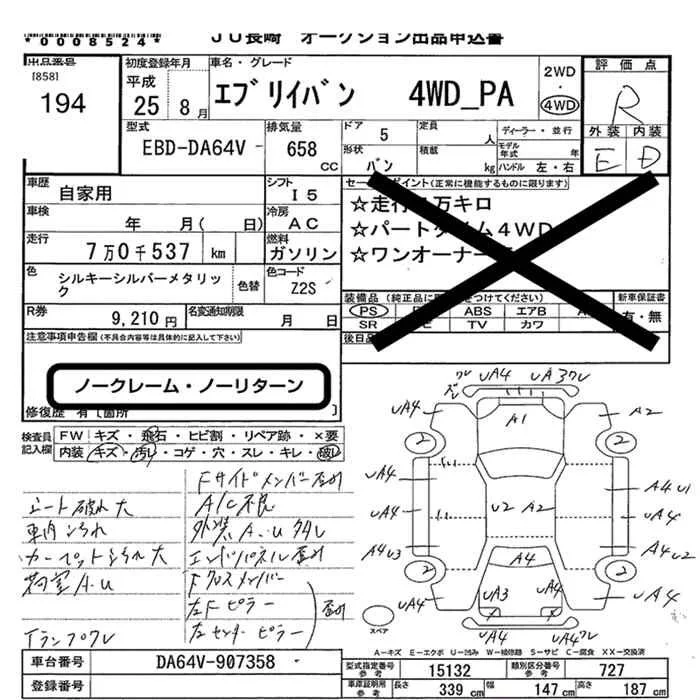 *0008524*
JU長崎 オークション出品申込書
出品番号
[858]
194
初度登録年月
平成
25年 8月
車名・グレード
エブリイバン 4WD_PA
2WD
・
4WD
評価点
R
外装 内装
E D
型式
EBD-DA64V
排気量
658
CC
ドア 5
形状
バン
定員
人
積載
kg
ディーラー・並行
モデル年式 年
ハンドル 左・右
車歴
自家用
シフト
I5
車検
年 月( 日)
冷房
AC
走行
7万0千537 km
燃料
ガソリン
色
シルキーシルバーメタリック
色替
色コード
Z2S
R券
9,210円
名変通知期限
月 日
セールスポイント(正常に機能するものに限ります)
☆走行 万キロ
☆パートタイム4WD
☆ワンオーナー
装備品(純正品に をつけてください)
PS ABS エアB
SR TV カワ
新車保証書
有・無
後日品
注意事項申告欄(不具合内容等は具体的に記入して下さい)
ノークレーム・ノーリターン
修復歴 有[箇所 ]
検査員記入欄
FW キズ・飛石・ヒビ割・リペア跡・×要
内装 キズ・汚レ・コゲ・穴・スレ・キレ・破レ
Fサイドメンバー歪み
シート破れ大
A/C不良
車内シミ汚れ
外装A.U多し
カーペットシミ汚れ大
エンドパネル歪み
荷室A.U
Fクロスメンバー
左Fピラー
左センターピラー
歪み
Tランプワレ
ワレ UA4 UA3ワレ
ズレ
UA4 A1 A2
2 2
UA4 A4U1
UA4 U2 A2 UA4
A4U3 A4 A4U2
2 2
UA4 UA3 UA4 UA4
スペア
UA4 UA4ワレ
A－キズ E－エクボ U－凹み W－補修跡 S－サビ C－腐食 XX－交換済
車台番号
DA64V-907358
登録番号
型式指定番号
参考
15132
類別区分番号
参考
727
車庫証明用
参考
長さ 339 cm
幅 147 cm
高さ 187 cm